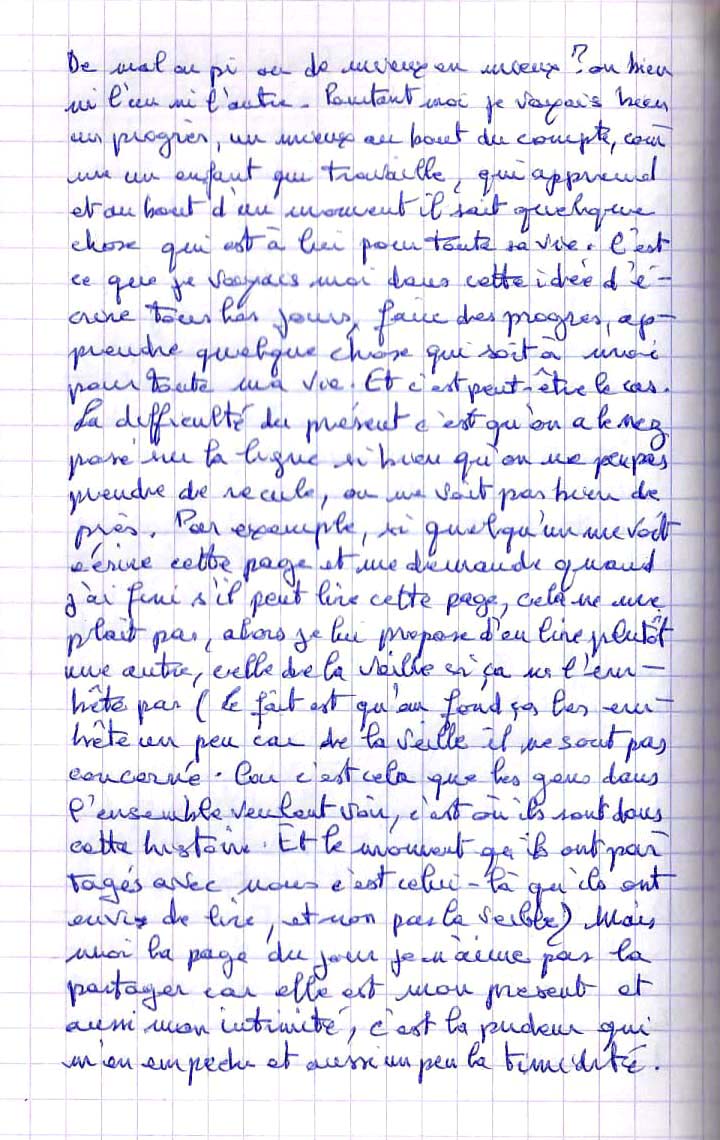 De mal au pi ou de mieux en mieux ? ou bien
ni l'un ni l'autre. Pourtant moi je voyais bien
un progrès, un mieux au bout du compte, com
me un enfant qui travaille, qui apprend
et au bout d'un moment il sait quelque
chose qui est à lui pour toute sa vie. C'est
ce que je voyais moi dans cette idée d'é-
crire tous les jours, faire des progrès, ap-
prendre quelque chose qui soit à moi
pour toute ma vie. Et c'est peut-être le cas.
La difficulté du présent c'est qu'on a le nez
posé sur la ligne si bien qu'on ne peu pas
prendre de recule, on ne voit pas bien de
près. Par exemple, si quelqu'un me voit
écrire cette page et me demande quand
j'ai fini s'il peut lire cette page, cela ne me
plait pas, alors je lui propose d'en lire plutôt
une autre, celle de la veille si ça ne l'em-
bête pas (le fait est qu'au fond ça les em-
bête un peu car de la veille il ne sont pas
concerné. Car c'est cela que les gens dans
l'ensemble veulent voir, c'est où ils sont dans
cette histoire. Et le moment qu'ils ont par
tagés avec nous c'est celui-là qu'ils ont
envie de lire, et non pas la veille) Mais
moi la page du jour je n'aime pas la
partager car elle est mon présent et
aussi mon intimité, c'est la pudeur qui
m'en empeche et aussi un peu la timidité.